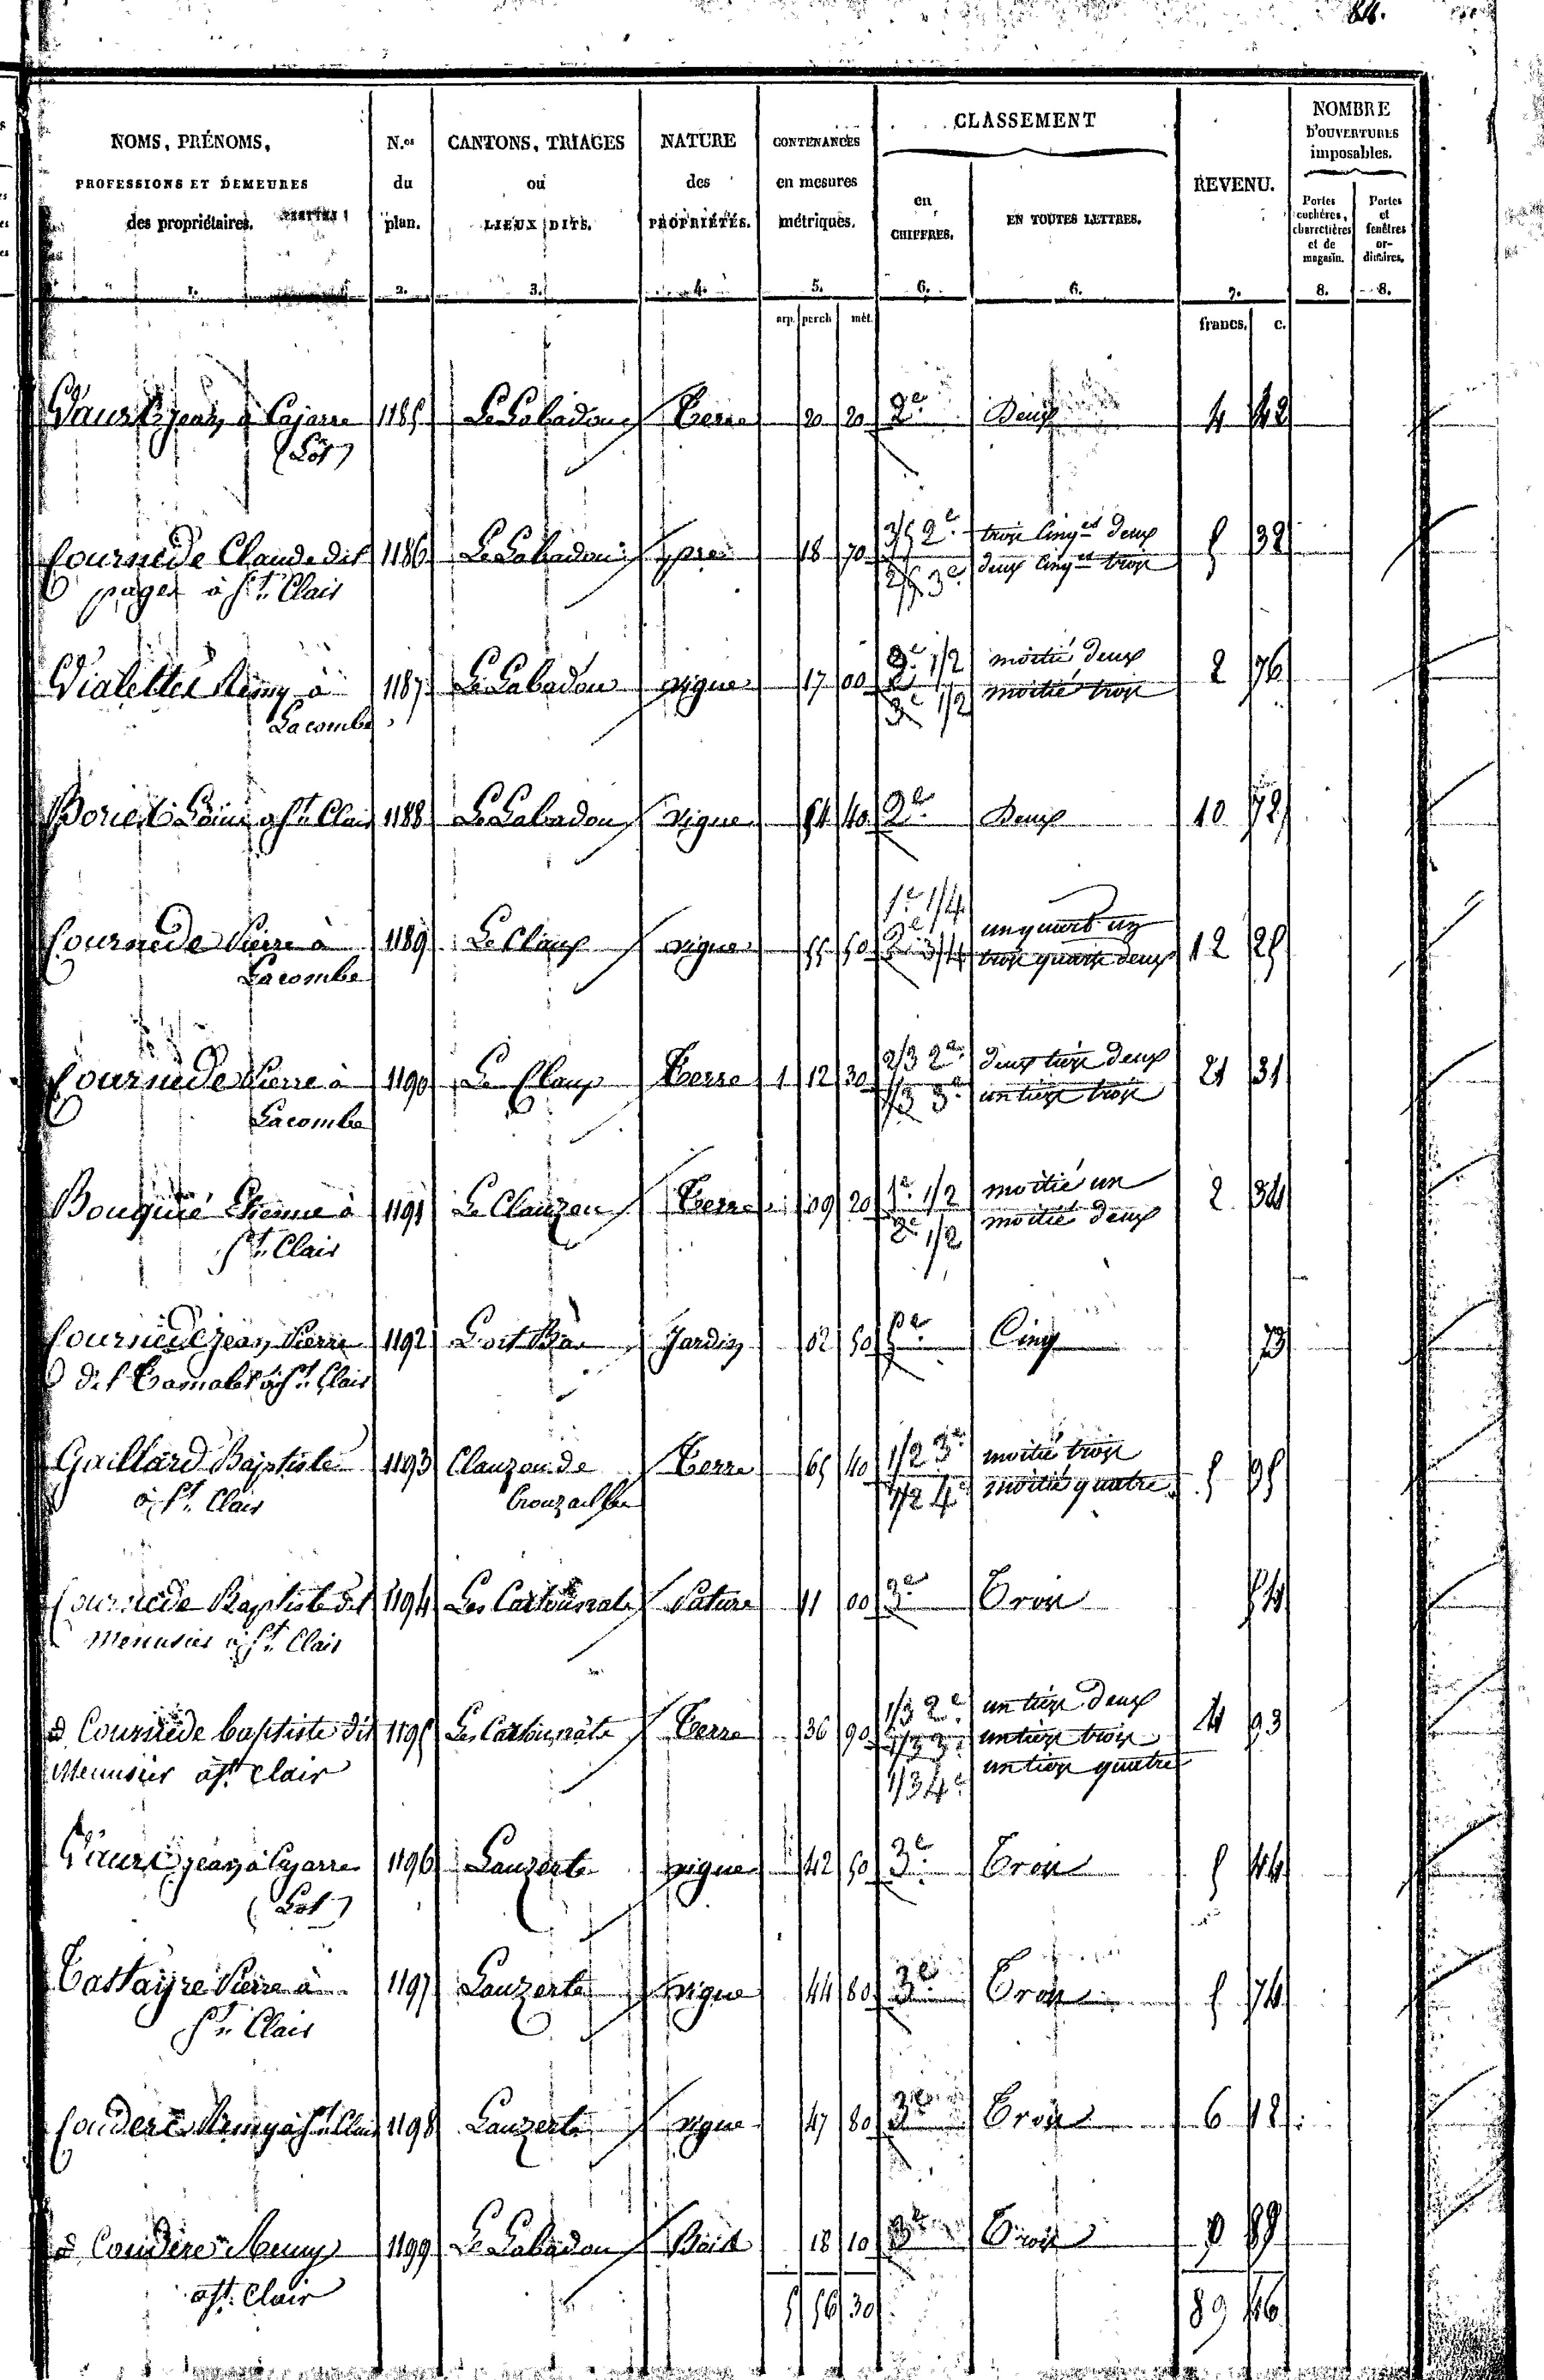 84.
NOMS, PRÉNOMS, PROFESSIONS ET DEMEURES des propriétaires. 1.
N.os du plan. 2.
CANTONS, TRIAGES ou LIEUX DITS. 3.
NATURE des PROPRIÉTÉS. 4.
CONTENANCES en mesures métriques. 5.
CLASSEMENT
en CHIFFRES. 6.
EN TOUTES LETTRES. 6.
REVENU. 7.
NOMBRE D'OUVERTURES imposables.
Portes cochères, charretières et de magasin. 8.
Portes et fenêtres ordinaires. 8.
arp. perch. mèt. francs. c.
jean à Cajarre 1185 Le Labadou Terre 20 20 2e Deux 4 42
(Lot)
Cournède Claude dit 1186 Le Labadou pré 18 70 3/5 2e trois cinqes deux 5 32
pages à St. Clair 2/5 3e deux cinqes trois
Vialettes Remy à 1187 Le Labadou vigne 17 00 2e 1/2 moitié deux 2 76
Lacombe 3e 1/2 moitié trois
à St Clair 1188 Le Labadou vigne 54 40 2e Deux 10 72
Cournède Pierre à 1189 Le Claux vigne 55 50 1e 1/4 un quart un 12 25
Lacombe 2e 3/4 trois quarts deux
Cournede Pierre à 1190 Le Claux Terre 1 12 30 2/3 2e deux tiers deux 21 31
Lacombe 1/3 3e un tiers trois
Bouquié Etienne à 1191 Le Clauzou Terre 09 20 1e 1/2 moitié un 2 34
St. Clair 2e 1/2 moitié deux
Cournède jean Pierre 1192 Jardin 02 50 5e Cinq 73
dit à St. Clair
Gaillard Baptiste 1193 Clauzou de Terre 65 40 1/2 3e moitié trois 5 95
à St. Clair 1/2 4e moitié quatre
Cournède Baptiste dit 1194 Les Pature 11 00 3e Trois 54
Menusier à St. Clair
d. Cournède baptiste dit 1195 Les Terre 36 90 1/3 2e un tiers deux 4 93
Menusier à St. clair 1/3 3e un tiers trois
1/3 4e un tiers quatre
jean à Cajarre 1196 Lauzerte vigne 42 50 3e Trois 5 44
(Lot)
Castayre Pierre à 1197 Lauzerte vigne 44 80 3e Trois 5 74
St. Clair
Couderc Remy à St. Clair 1198 Lauzerte vigne 47 80 3e Trois 6 12
d. Couderc Remy 1199 Le Labadou Bois 18 10 3e Trois
à St. Clair
5 56 30 89 46